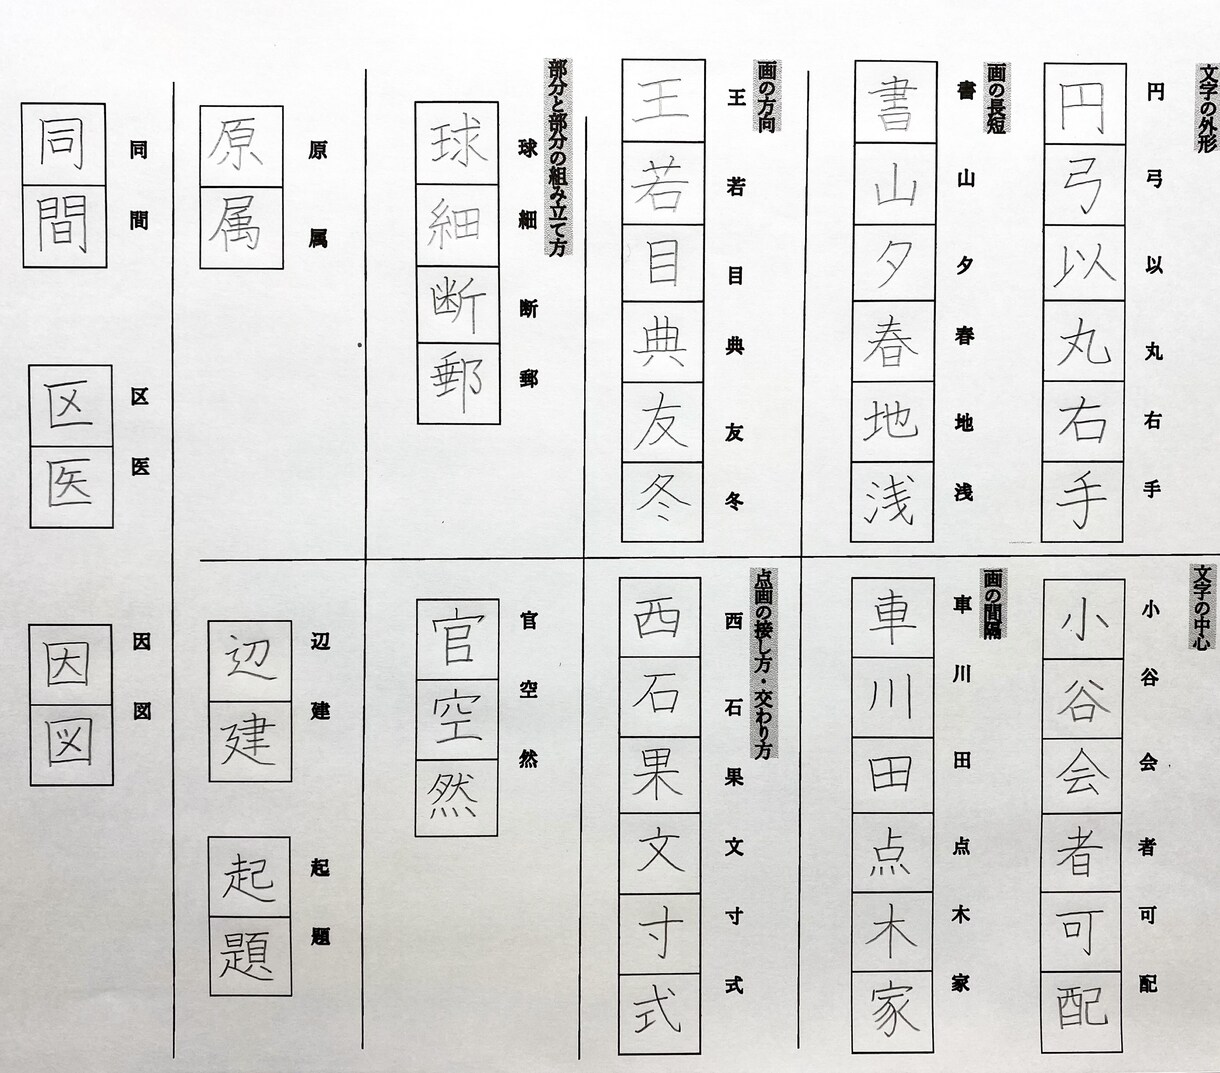 文字の外形
円 弓 以 丸 右 手
円 弓 以 丸 右 手
文字の中心
小 谷 会 者 可 配
小 谷 会 者 可 配
画の長短
書 山 夕 春 地 浅
書 山 夕 春 地 浅
画の間隔
車 川 田 点 木 家
車 川 田 点 木 家
画の方向
王 若 目 典 友 冬
王 若 目 典 友 冬
点画の接し方・交わり方
西 石 果 文 寸 式
西 石 果 文 寸 式
部分と部分の組み立て方
球 細 断 郵
球 細 断 郵
官 空 然
官 空 然
原 属
原 属
辺 建
辺 建
起 題
起 題
同 間
同 間
区 医
区 医
因 図
因 図